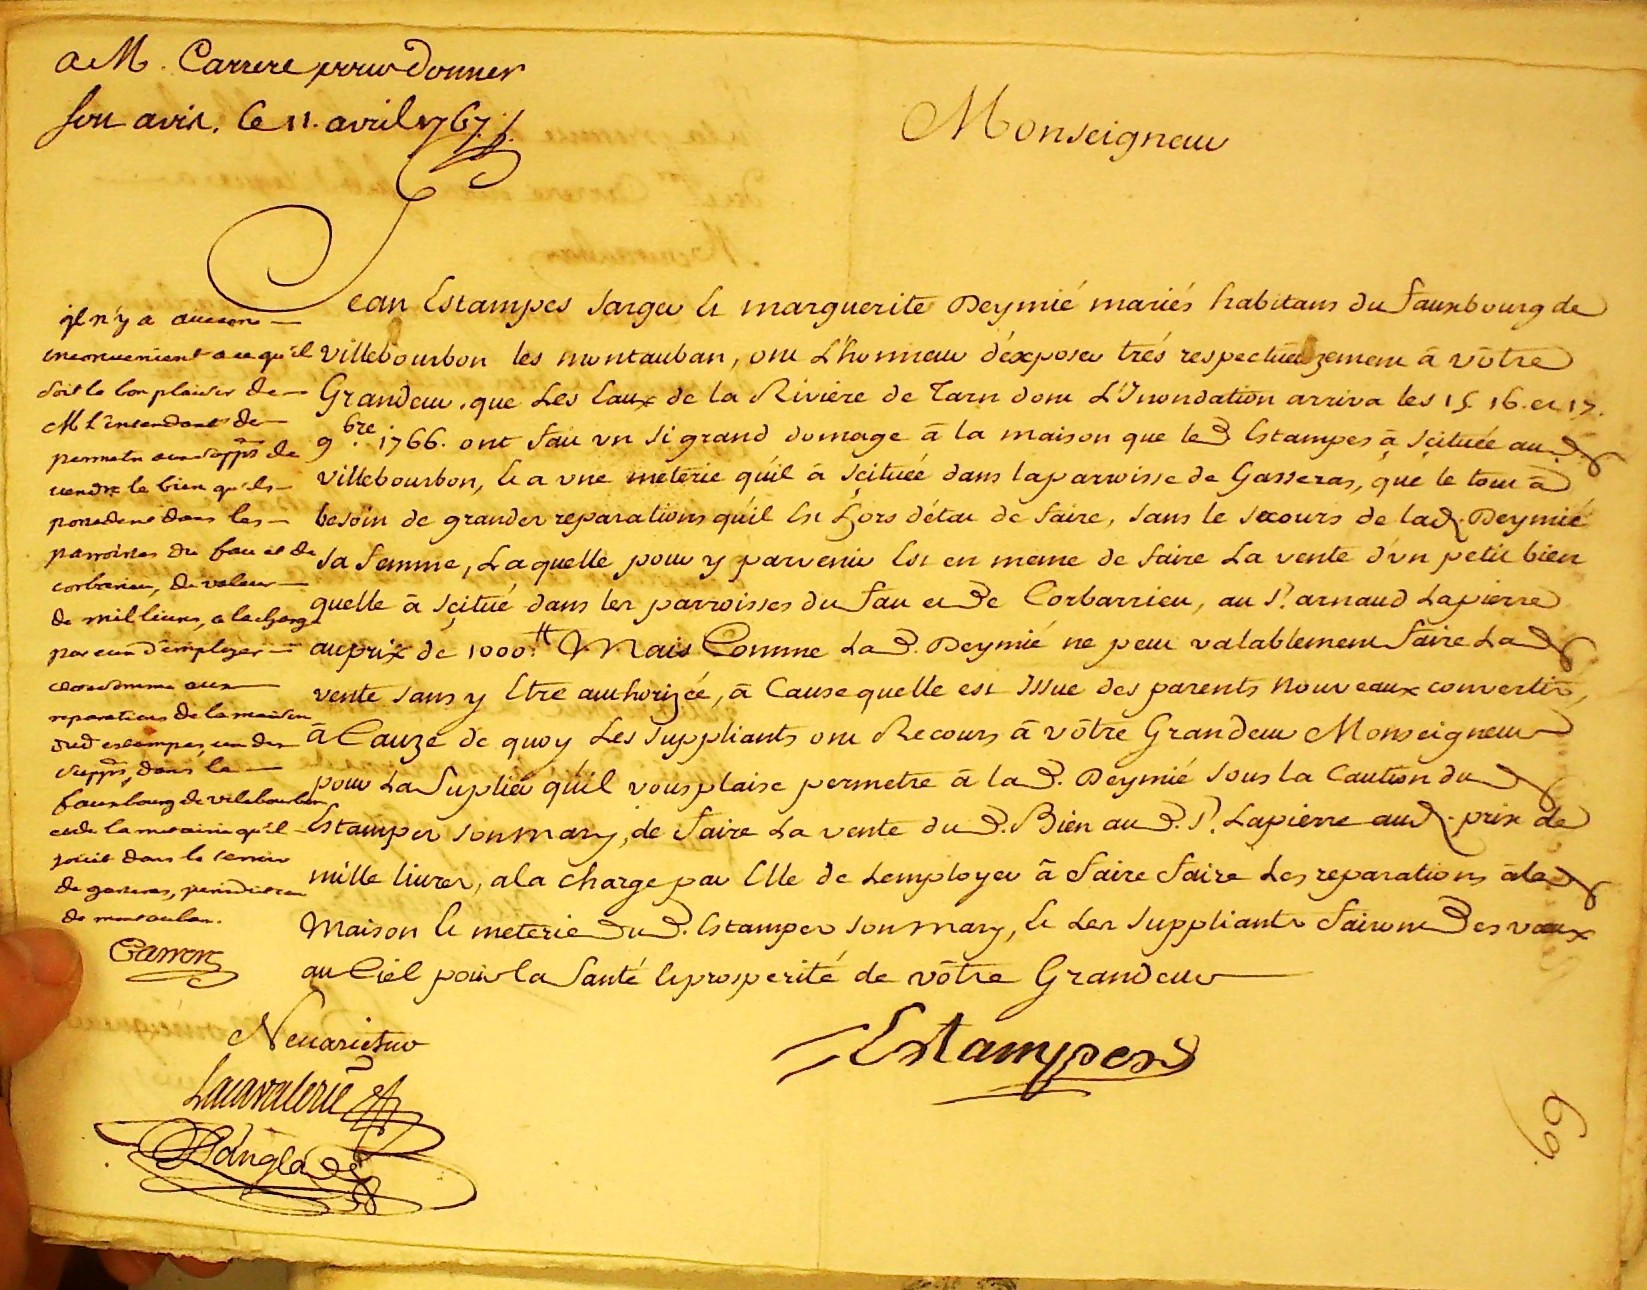 a M. Carrere pour donner
son avis. le 11. avril 1767.
Monseigneur
Jean Estampes sarger et marguerite Deymié mariés habitans du fauxbourg de
villebourbon les montauban, ont L'honneur d'éxposer trés respectueuzement â vôtre
Grandeur, que Les Eaux de la Riviere de Tarn dont L'Inondation arriva les 15. 16. et 17.
9bre. 1766. ont fait un si grand domage â la maison que led Estampes â scituée aud.
villebourbon, et a une meterie qu'il â scituée dans la parroisse de Gasseras, que le tout â
besoin de grandes reparations qu'il Est hors d'état de faire, sans le secours de lad. Deymié
sa femme, Laquelle pour y parvenir Est en meme de faire La vente d'un petit bien
quelle â scitué dans les parroisses du fau et de Corbarrieu, au Sr. arnaud Lapierre
au prix de 1000.tt Mais Comme La d. Deymié ne peut valablement faire Lad.
vente sans y Etre authorizée, â Cause quelle est Issue des parents Nouveaux convertis,
â Cauze de quoy Les suppliants ont Recours â vôtre Grandeur Monseigneur
pour La Suplier qu'il vous plaise permetre â la d. Deymié sous la Caution du d.
Estampes son mary, de faire La vente du d. Bien au d. Sr. Lapierre aud. prix de
mille livres, a la charge par Elle de Lemployer â faire faire Les reparations â la d.
Maison et meterie du d. Estampes son mary, et Les suppliants fairont Des vœux
au Ciel pour la Santé et prosperité de vôtre Grandeur
il n'y a aucun
inconvenient a ce qu'il
soit le bon plaisir de
M L'intendant de
permetre aux supp.ts de
vendre le bien qu'ils
possedent dans les
parroisses du fau et de
corbarieu, de valeur
de mil livres, a la charge
par eux d'employer
cette somme aux
reparations de la maison
dud estampes, un des
supp.ts, dans le
fauxbourg de villebourbon
et de la metairie qu'il
jouit dans le terroir
de gasseras, juridiction
de montauban.
Carrere
Estampes
Lacavalerie
Langlades
69.